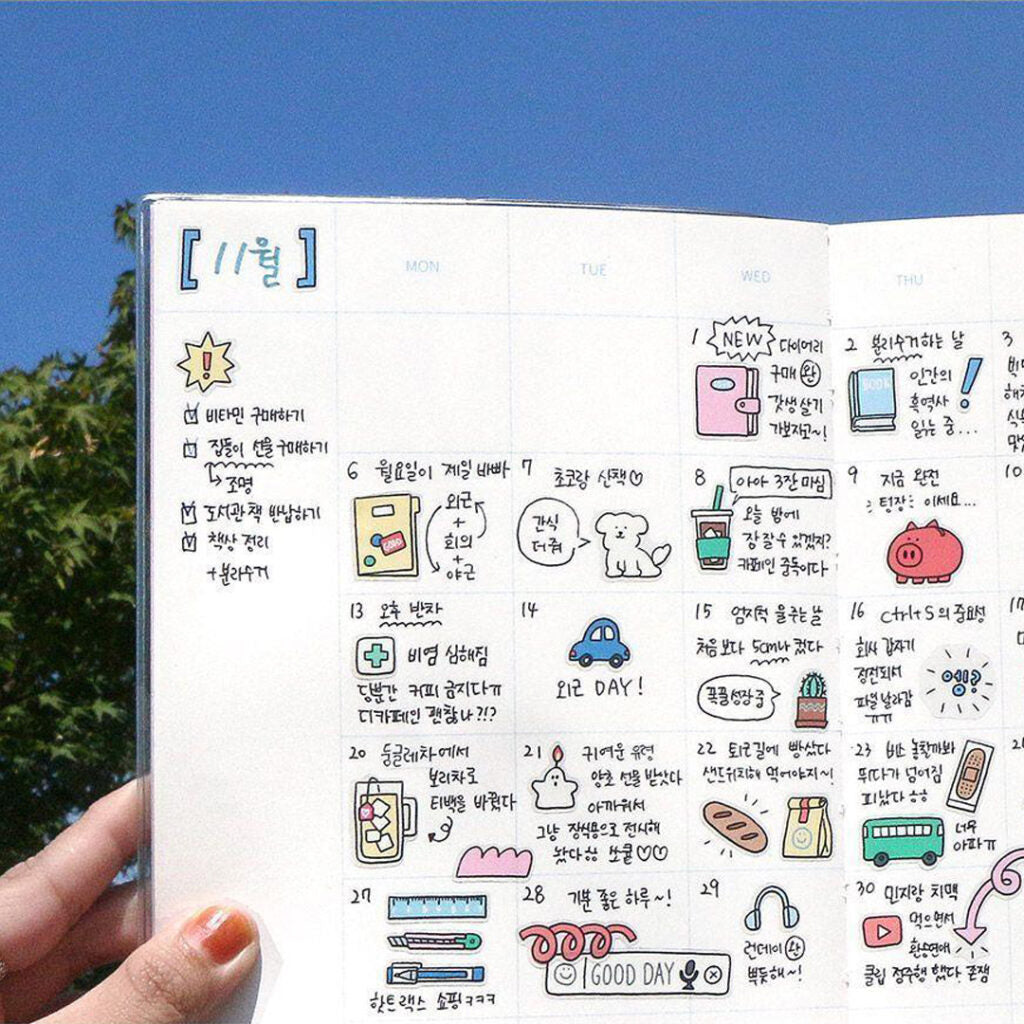 [ 11월 ]
MON
TUE
WED
THU
!
비타민 구매하기
집들이 선물 구매하기
조명
도서관 책 반납하기
책상 정리
+분리수거
1
NEW
다이어리
구매 완
갓생 살기
가보자고~!
2 분리수거하는 날
BOOK
인간의
흑역사
읽는 중...
3
6 월요일이 제일 바빠
GOOD
외근
+
회의
+
야근
7 초코랑 산책♡
간식
더 줘
8 아아 3잔 마심
오늘 밤에
잠 잘 수 있겠지?
카페인 중독이다
9 지금 완전
텅장 이세요...
10
13 오후 반차
비염 심해짐
당분간 커피 금지다ㅠ
디카페인 괜찮나?!?
14
외근 DAY!
15 엄지척 물 주는 날
처음보다 5cm나 컸다
폭풀성장 중
16 ctrl+S의 중요성
회사 갑자기
정전돼서
파일 날라감
ㅠㅠ
예?
20 둥글레차에서
보리차로
티백을 바꿨다
21 귀여운 유령
양초 선물 받았다
아까워서
그냥 장식용으로 전시해
놨다ㅎㅎ 쏘쿨♡♡
22 퇴근길에 빵 샀다
샌드위치해 먹어야지~!
23 버스 놓칠까봐
뛰다가 넘어짐
피났다ㅎㅎ
너무
아파ㅠ
27
핫트랙스 쇼핑ㅋㅋㅋ
28 기분 좋은 하루~!
GOOD DAY
29
런데이 완
뿌듯해~!
30 민지랑 치맥
먹으면서
환승연애
클립 정주행 했다. 존잼